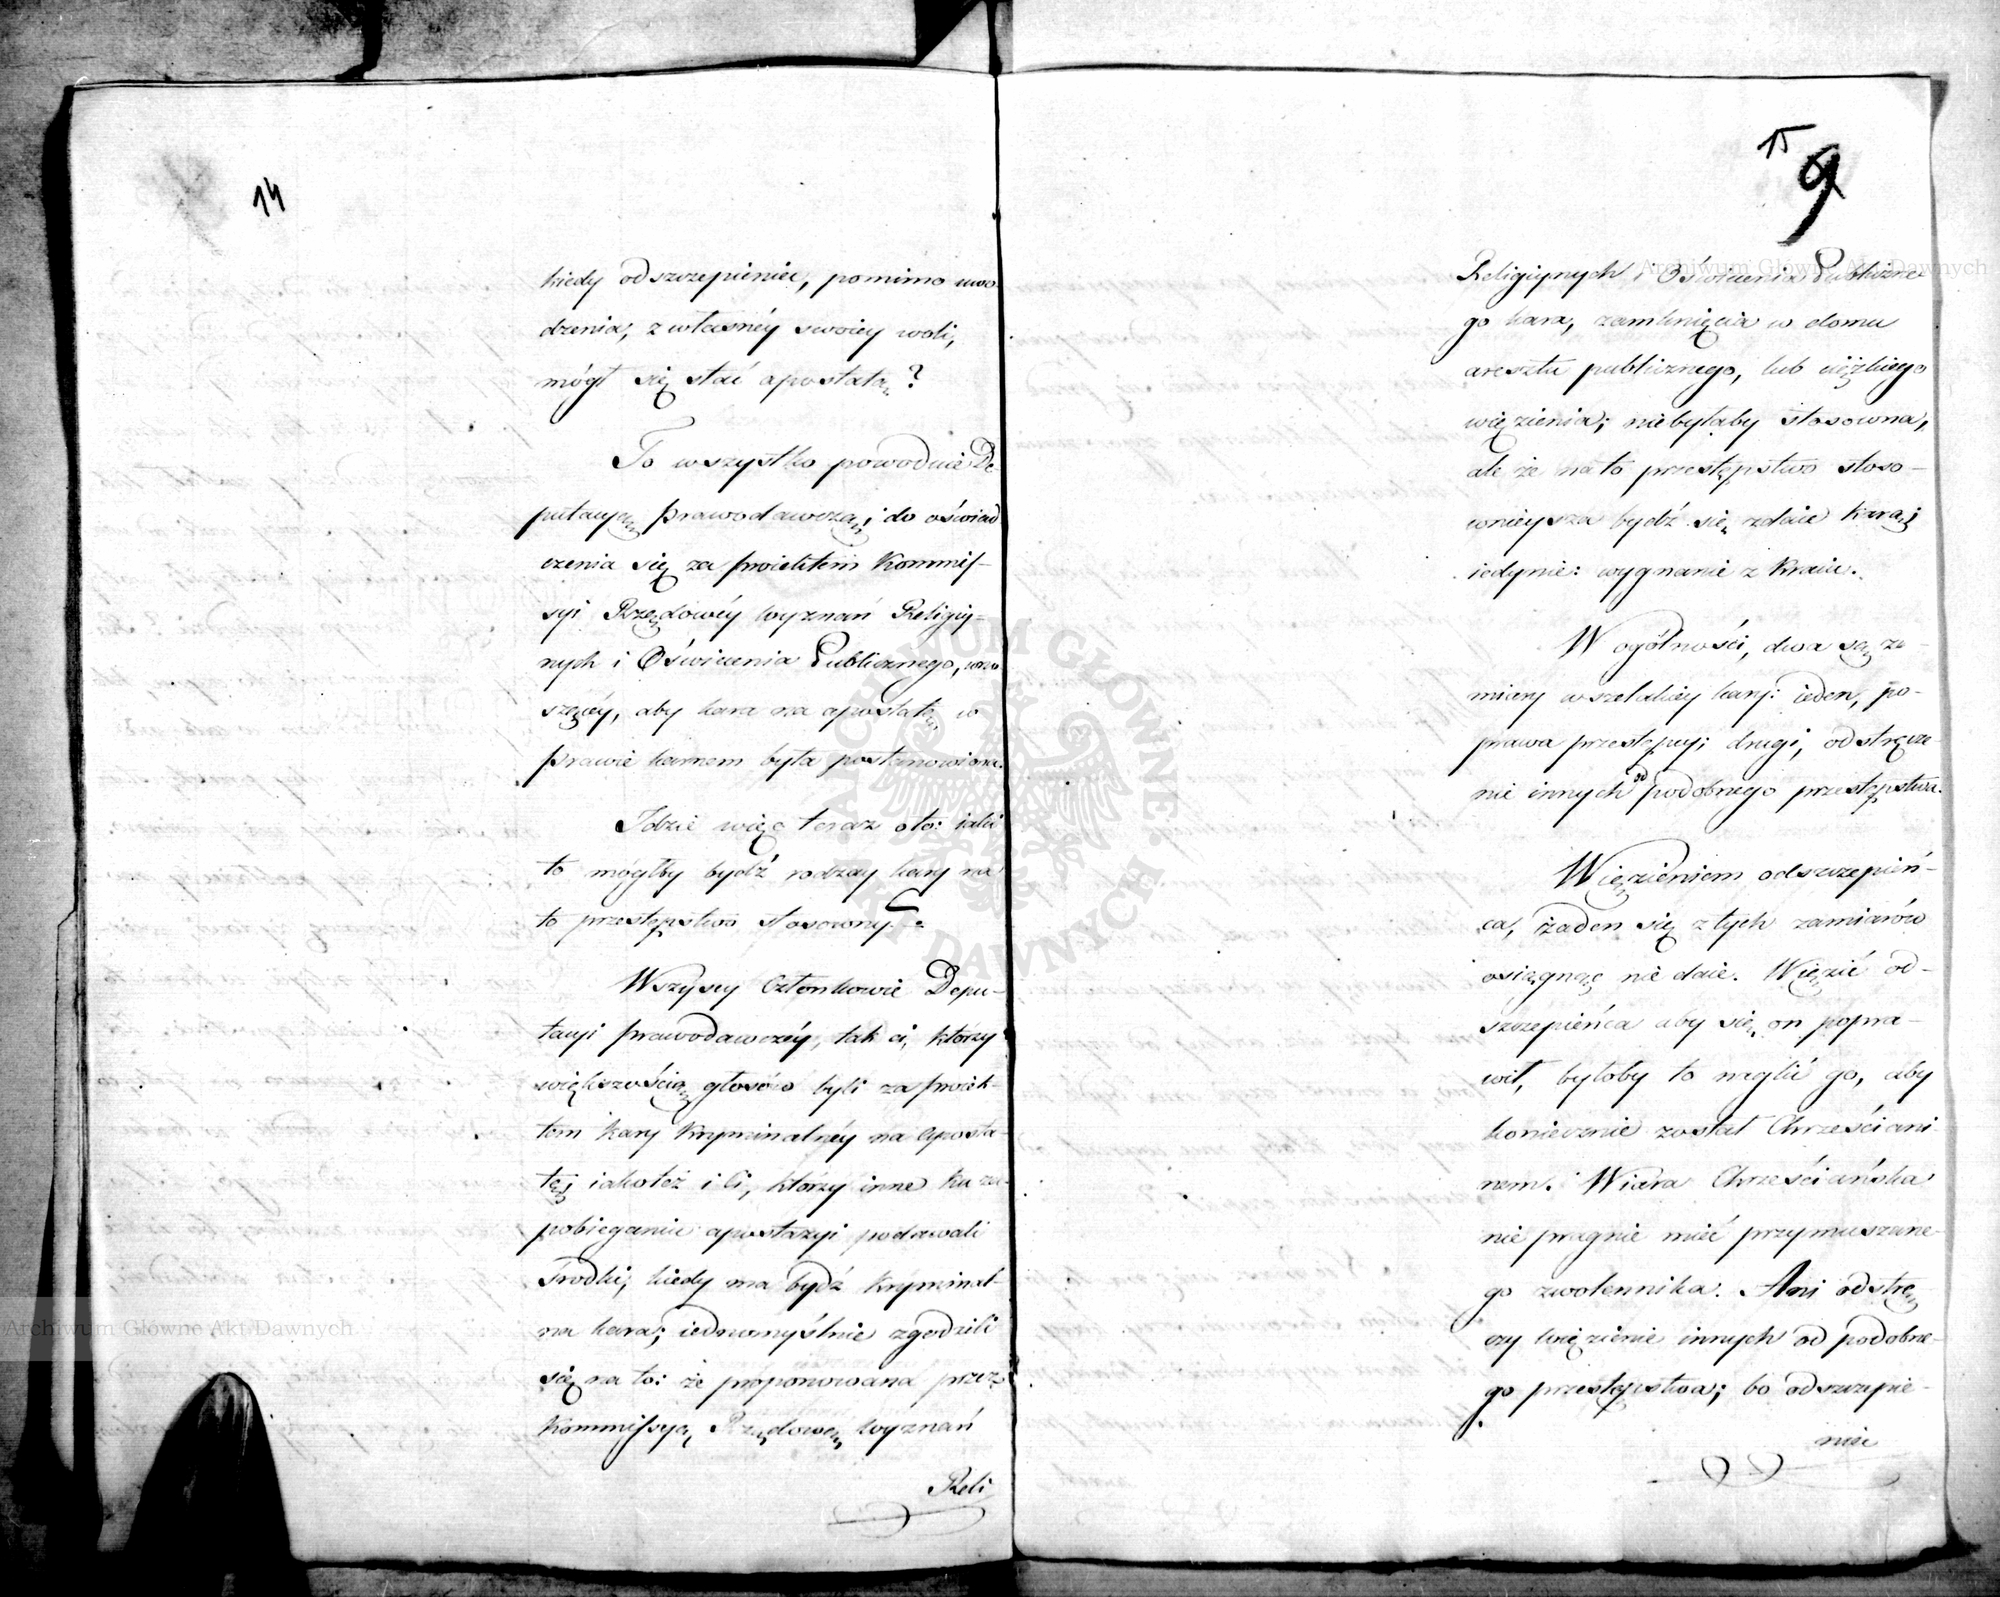 14
kiedy odszczepieniec, pomimo uwo-
dzenia, z własnéy swoiey woli,
mógł się stać apostatą?
To wszystko powoduie De-
putacyą Prawodawczą; do oświad
czenia się za proiektem Kommis-
syi Rządowéy Wyznań Religiy-
nych i Oświecenia Publicznego, wno
szącéy, aby kara na apostatę w
Prawie karnem była postanowiona.
Idzie więc teraz oto: iaki
to mógłby bydź rodzay kary na
to przestępstwo stosowny?
Wszyscy Członkowie Depu-
tacyi Prawodawczéy, tak ci, którzy
większością głosów byli za proiek-
tem kary Kryminalnéy na Aposta-
tę; iakoteż i Ci, którzy inne ku za-
pobieganiu apostazyi podawali
środki; kiedy ma bydź Kryminal-
na kara; iednomyślnie zgodzili
się na to: że proponowana przez
Kommissyą Rządową Wyznań
Reli
15
9
Religiynych i Oświecenia Publiczne-
go kara, zamknięcia w domu
aresztu publicznego, lub ciężkiego
więzienia; niebyłaby stosowna,
ale że na to przestępstwo stoso-
wnieysza bydź się zdaie karą;
iedynie: wygnanie z Kraiu.
W ogólności, dwa są za-
miary wszelakiey kary: ieden, po-
prawa przestępcy; drugi, odstręcze
nie innych od podobnego przestępstwa.
Więzieniem odszczepień-
ca, żaden się z tych zamiarów
osiągnąć nie daie. Więzić od-
szczepieńca aby się on popra-
wił, byłoby to naglić go, aby
koniecznie został Chrześciani-
nem. Wiara Chrześciańska
nie pragnie mieć przymuszone-
go zwolennika. Ani odstrę
czy więzienie innych od podobne-
go przestępstwa; bo odszczepie-
niec
Archiwum Główne Akt Dawnych
Archiwum Główne Akt Dawnych
ARCHIWUM GŁÓWNE AKT DAWNYCH